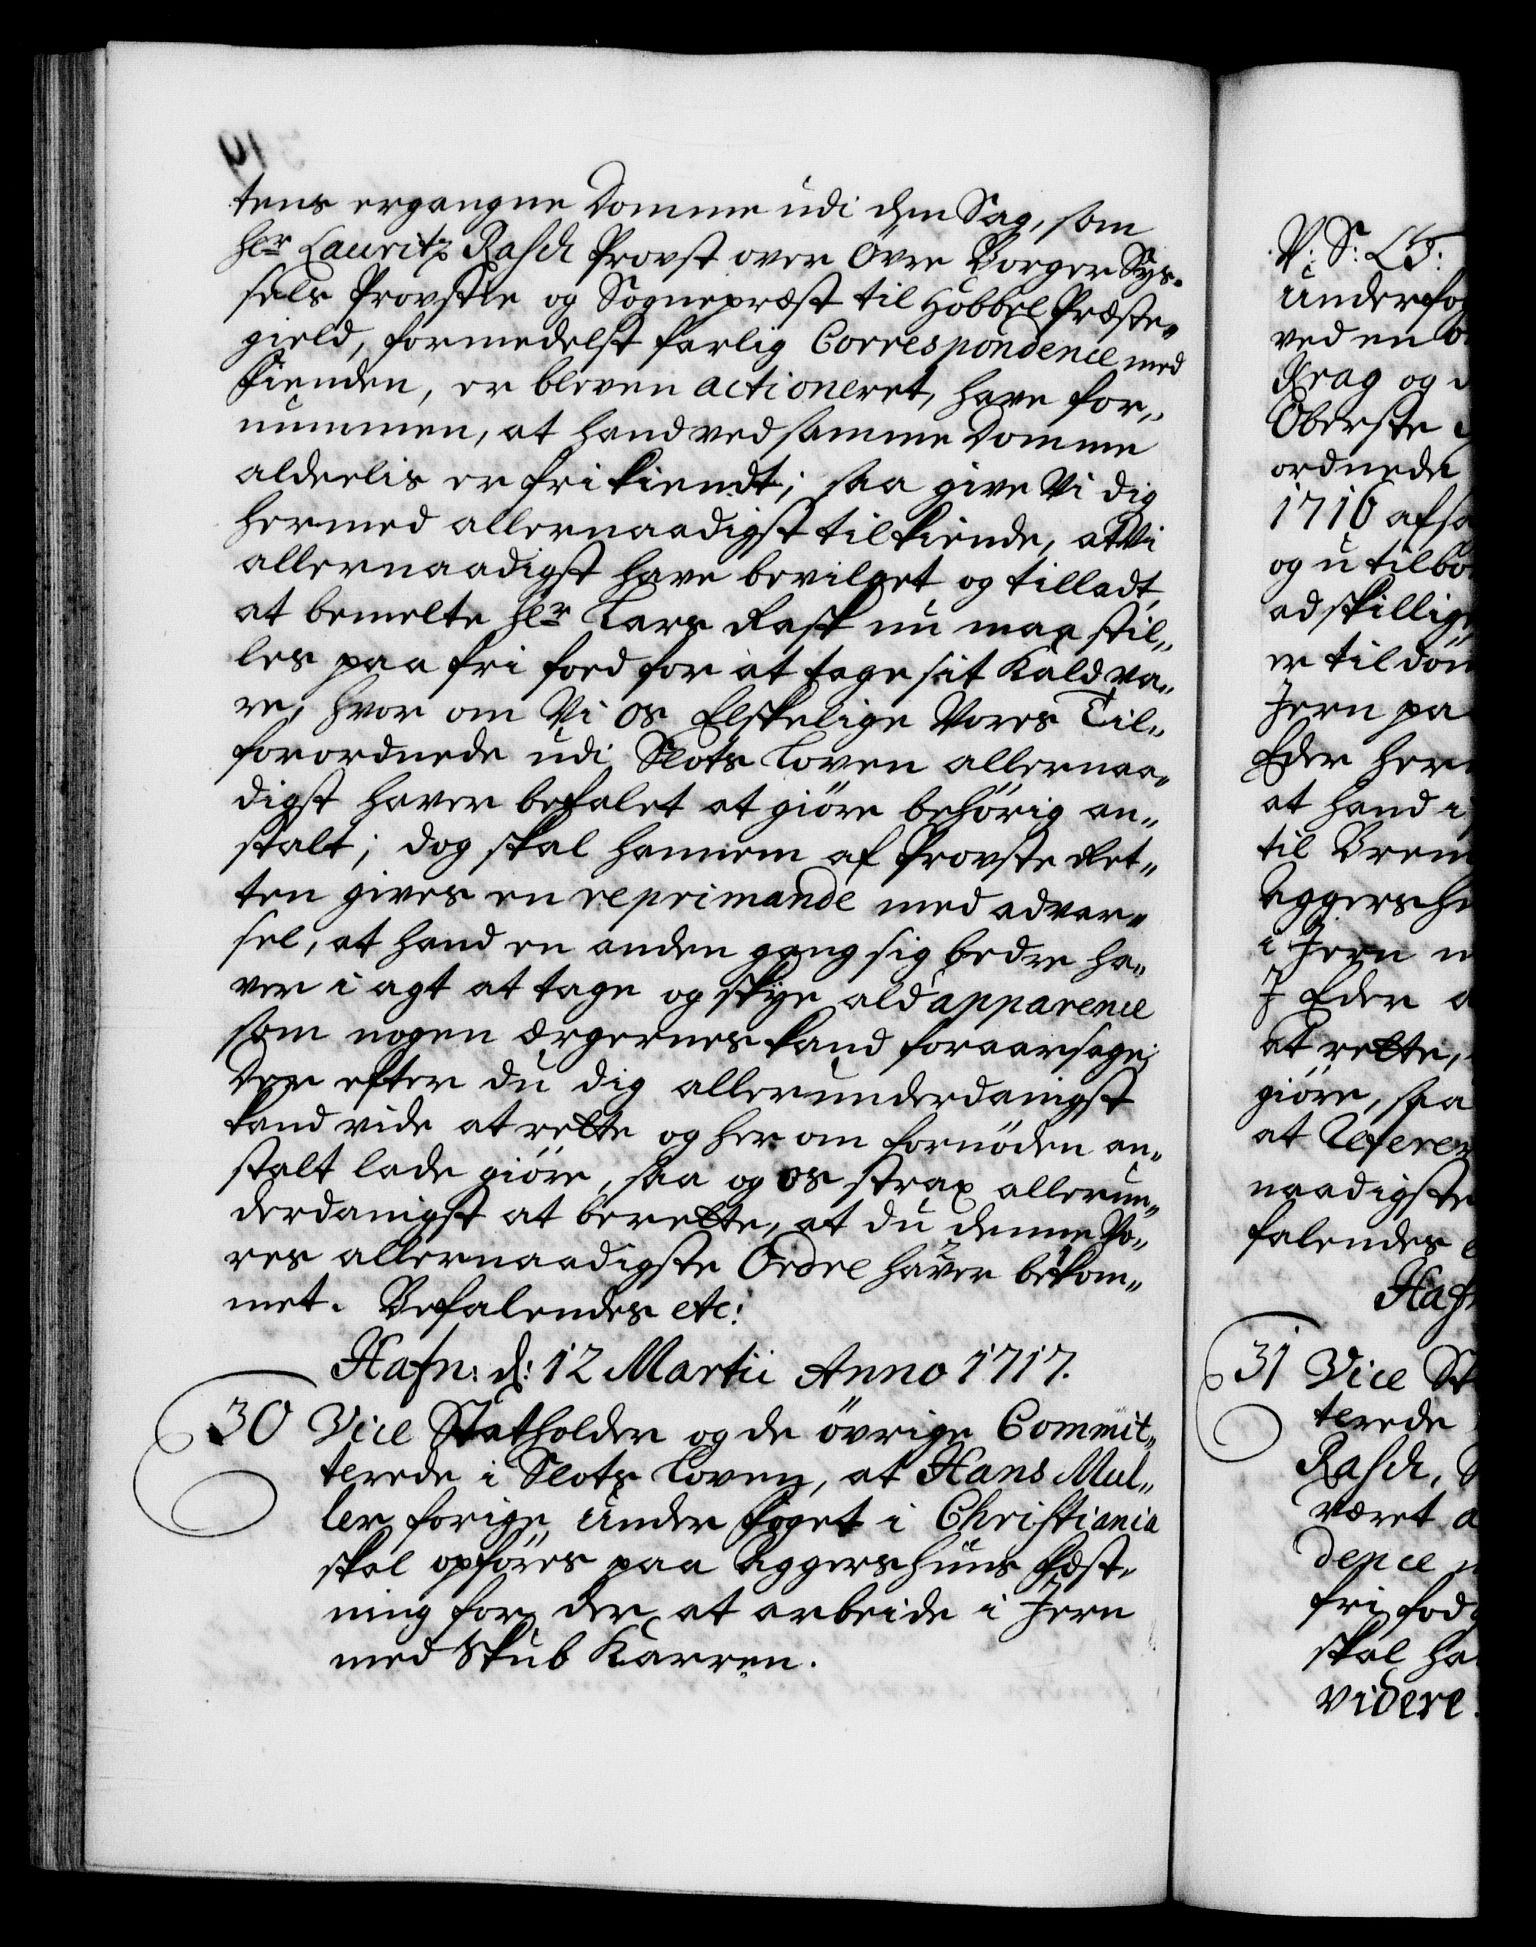 tens ergangne Domme udi den Sag, som
Hr Lauritz Rasch Provst over Övre Borger Sys-
sels Provstie og Sognepræst til Hobbel Præste-
gield, formedelst farlig Correspondence med
Fienden, er bleven actioneret, have for-
nummen, at hand ved samme Domme
alderlis er frikiendt; saa give Vi dig
hermed allernaadigst tilkiende, at Vi
allernaadigst have bevilget og tilladt,
at bemelte Hr Lars Rask nu maa stil-
les paa fri foed for at tage sit Kald va-
re, hvor om Vi os Elskelige Vores Til-
forordnede udi Slots Loven allernaa-
digst haver befalet at giöre behörig an-
stalt; dog skal hannem af Provste Ret-
ten gives en reprimande med advar-
sel, at hand en anden gang sig bedre ha-
ver i agt at tage og skye ald apparence
som nogen ærgernes kand foraarsage;
Der efter du dig allerunderdanigst
kand vide at rette og her om fornöden an-
stalt lade giöre, saa og os strax allerun-
derdanigst at berette, at du denne Vo-
res allernaadigste Ordre haver bekom-
met. Befalendes etc:
Hafn: d: 12 Martii Anno 1717.
30 Vice Statholder og de övrige Commit-
terede i Slots Loven, at Hans Mul-
ler forige Under Foget i Christiania
skal opföres paa Aggershuus Fæst-
ning for der at arbeide i Jern
med Skub Karren.
V: S: L G:
Underfog
ved en
Krag og
Oberste
ordnede
1716 afsa
og utilbö
adskillige
er til döm
Jern pa
Eder her
at hand i
til Brem
Aggershu
i Jern
I Eder
at rette,
giöre, saa
at Referer
naadigste
falendes
Hafn
31 Vice St
terede
Rasch,
været a
dence
fri fod
skal ha
videre